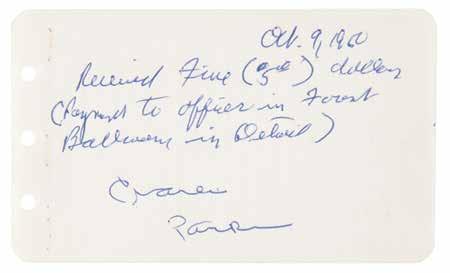 Oct. 9, 1960
Received Five (5.00) dollars
(Payment to officer in Forest
Ballroom in Detroit)
Parks